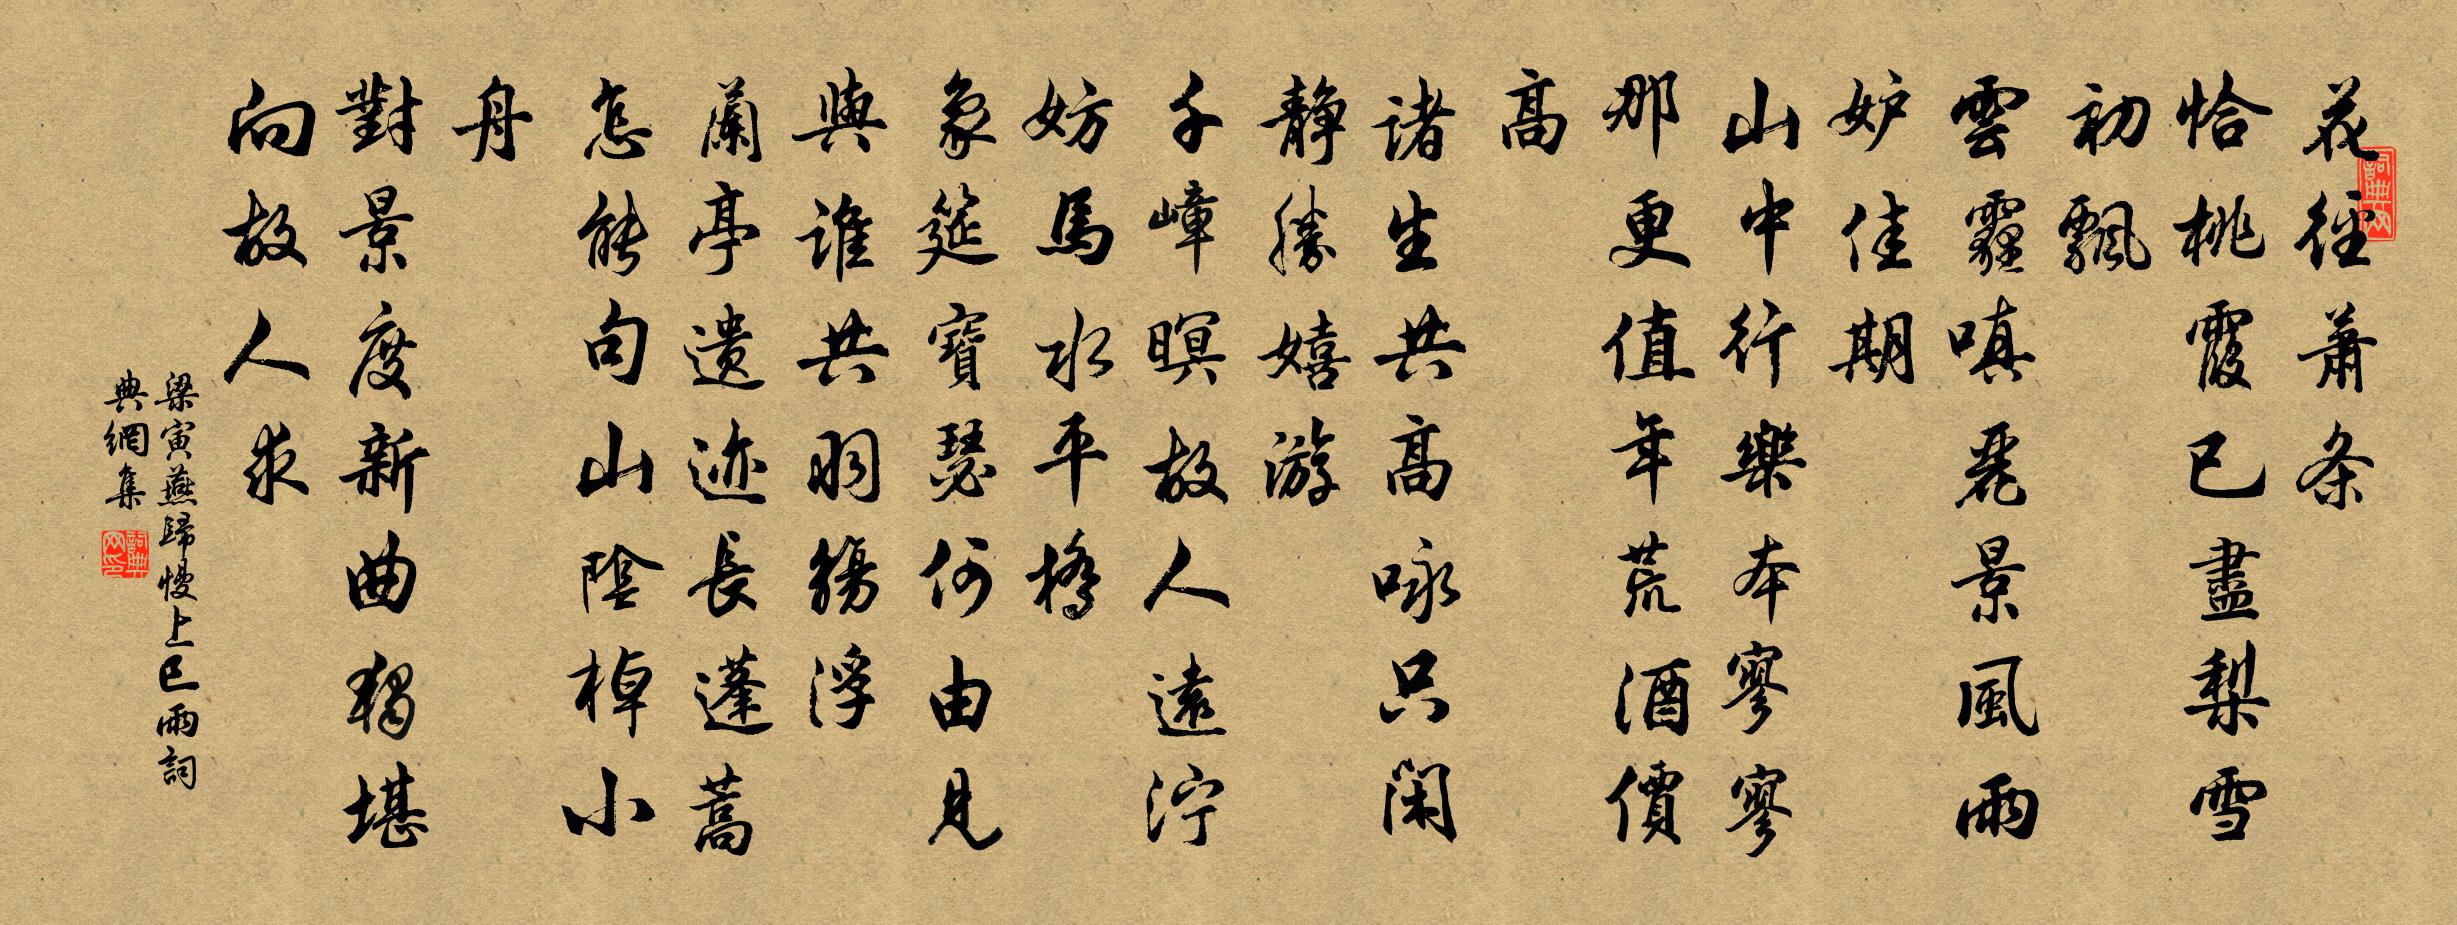 花徑萧条
恰桃霞已盡梨雪
初飄
雲霾嗔麗景風雨
妒佳期
山中行樂本寥寥
那更值年荒酒價
高
诸生共高咏只闲
静勝嬉游
千嶂暝故人遠泞
妨馬水平橋
象筵寶瑟何由見
與谁共羽觞浮
蘭亭遗迹長蓬蒿
怎能句山陰棹小
舟
對景度新曲猶堪
向故人求
梁寅燕歸慢上巳雨詞
典網集
詞典网
詞典网印